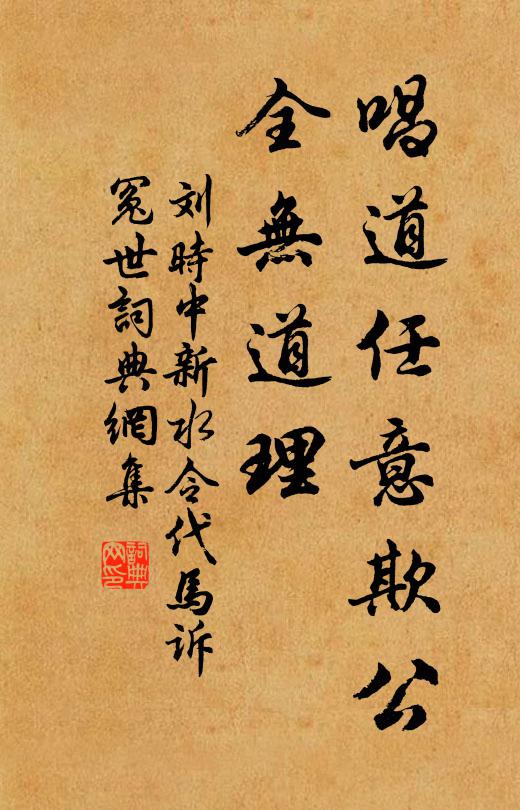 唱道任意欺公
全無道理
刘時中新水令代馬訴
冤世詞典網集
詞典
网印